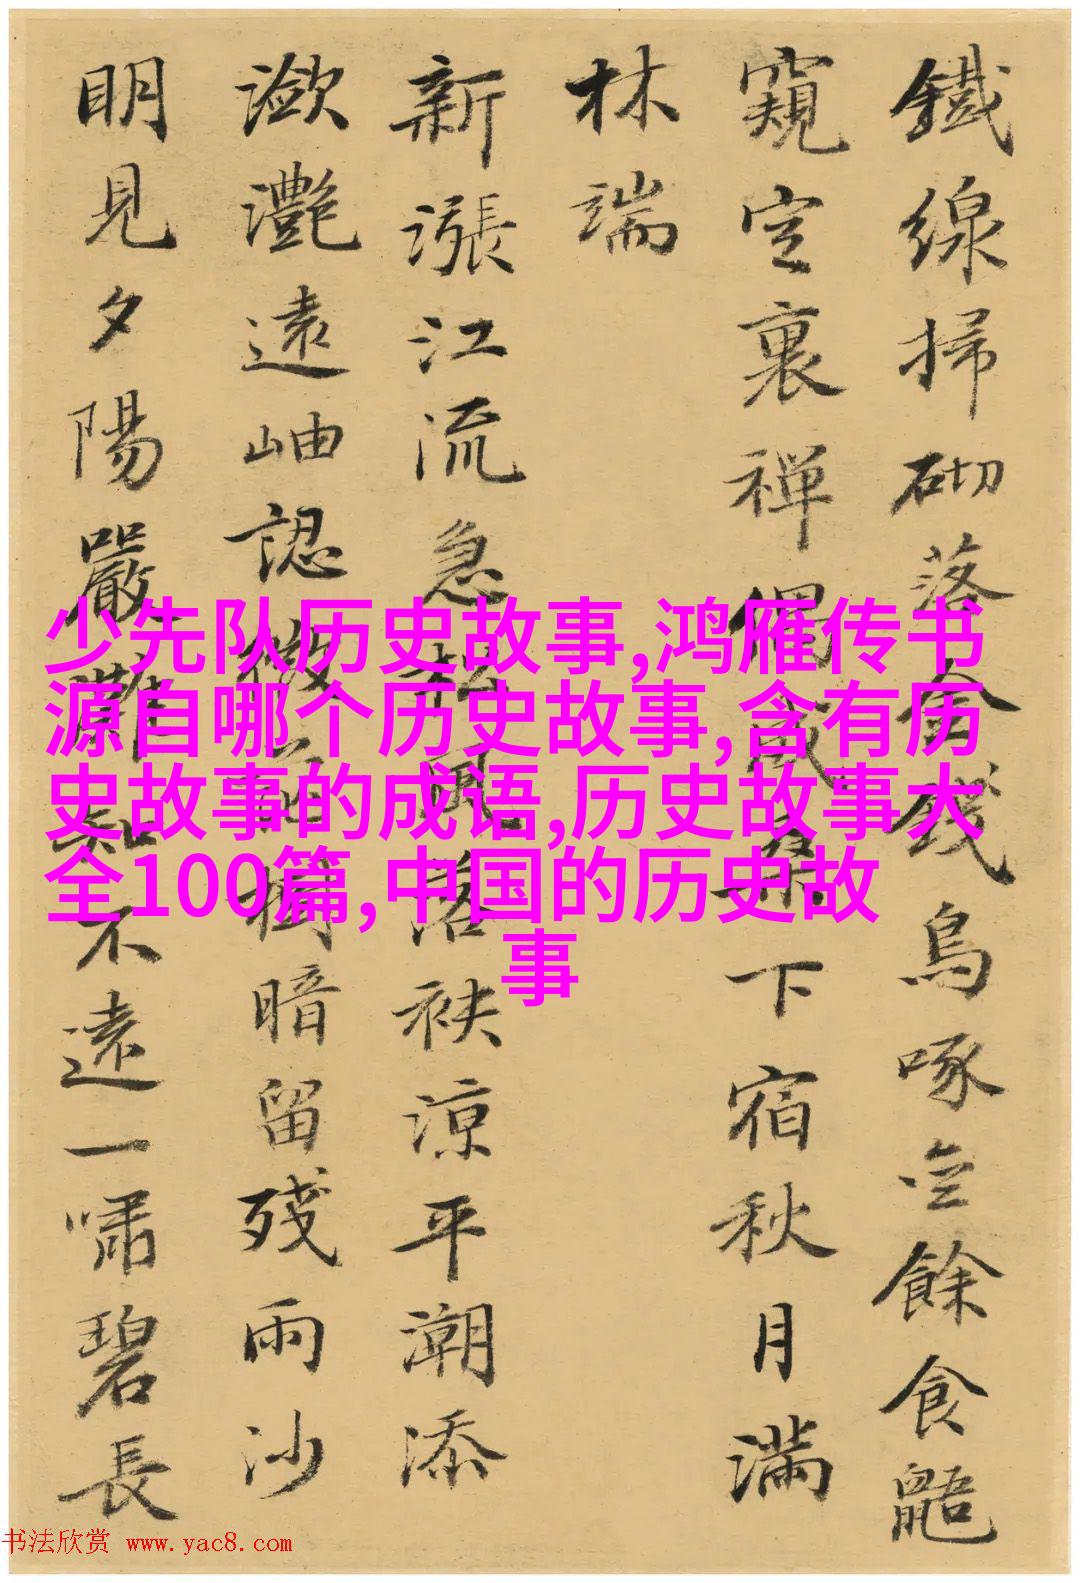 鐵線掃砌落金錢烏啄
餘食鼯
窺
裏禅偈
下宿秋月滿
林端
新漲江流急
落袂涼平潮添
瀲灧遠岫認
暗留殘雨沙
明見夕陽嚴灘知不遠一嘯碧長
少先队历史故事,鸿雁传书
源自哪个历史故事,含有历
史故事的成语,历史故事大
全100篇,中国的历史故
事
书法欣赏 www.yac8.com